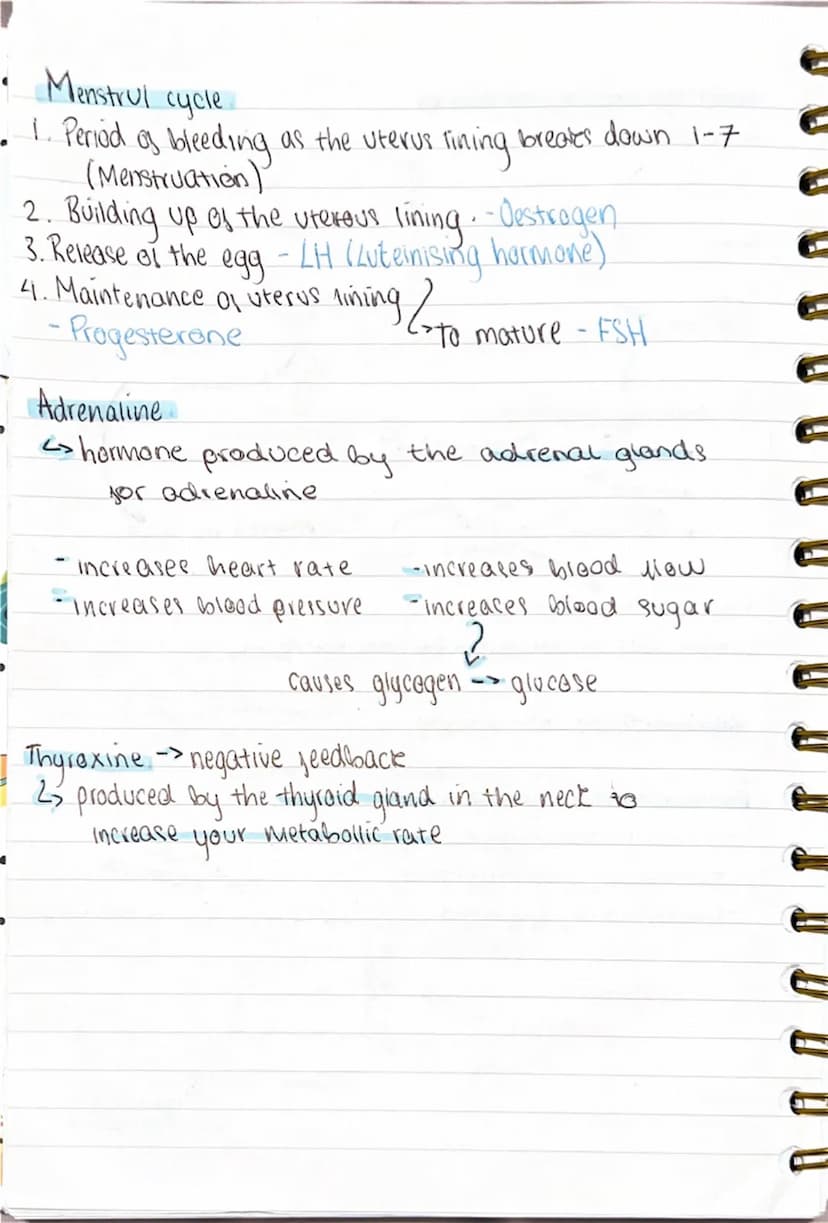 Menstrul cycle
1. Period of bleeding as the uterus lining breaks down 1-7
(Menstruation)
2. Building up of the uterous lining. - Oestrogen
3. Release of the egg - LH (Luteinising hormone)
4. Maintenance of uterus lining
- Progesterone
↳ to mature - FSH
Adrenaline
↳ hormone produced by the adrenal glands
for adrenaline
- increases heart rate - increases blood flow
- increases blood pressure - increases blood sugar
causes glycogen -> glucose
Thyroxine -> negative feedback
↳ produced by the thyroid gland in the neck to
increase your metabollic rate